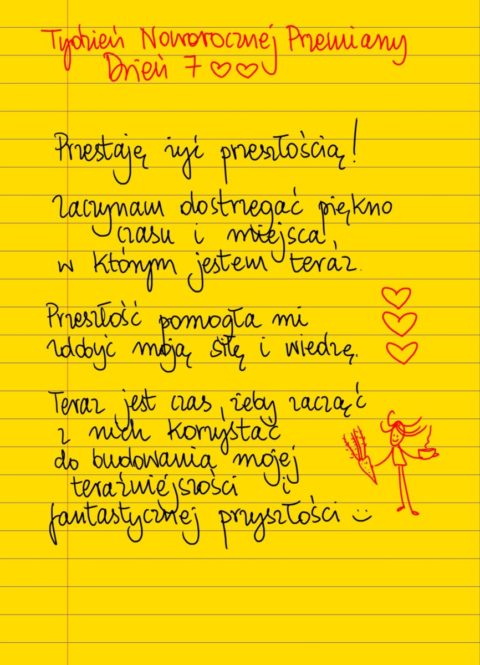 Tydzień Noworocznej Przemiany
Dzień 7 ♡♡
Przestaję żyć przeszłością!
Zaczynam dostrzegać piękno
czasu i miejsca,
w którym jestem teraz.
Przeszłość pomogła mi
zdobyć moją siłę i wiedzę.
Teraz jest czas, żeby zacząć
z nich korzystać
do budowania mojej
teraźniejszości i
fantastycznej przyszłości :)